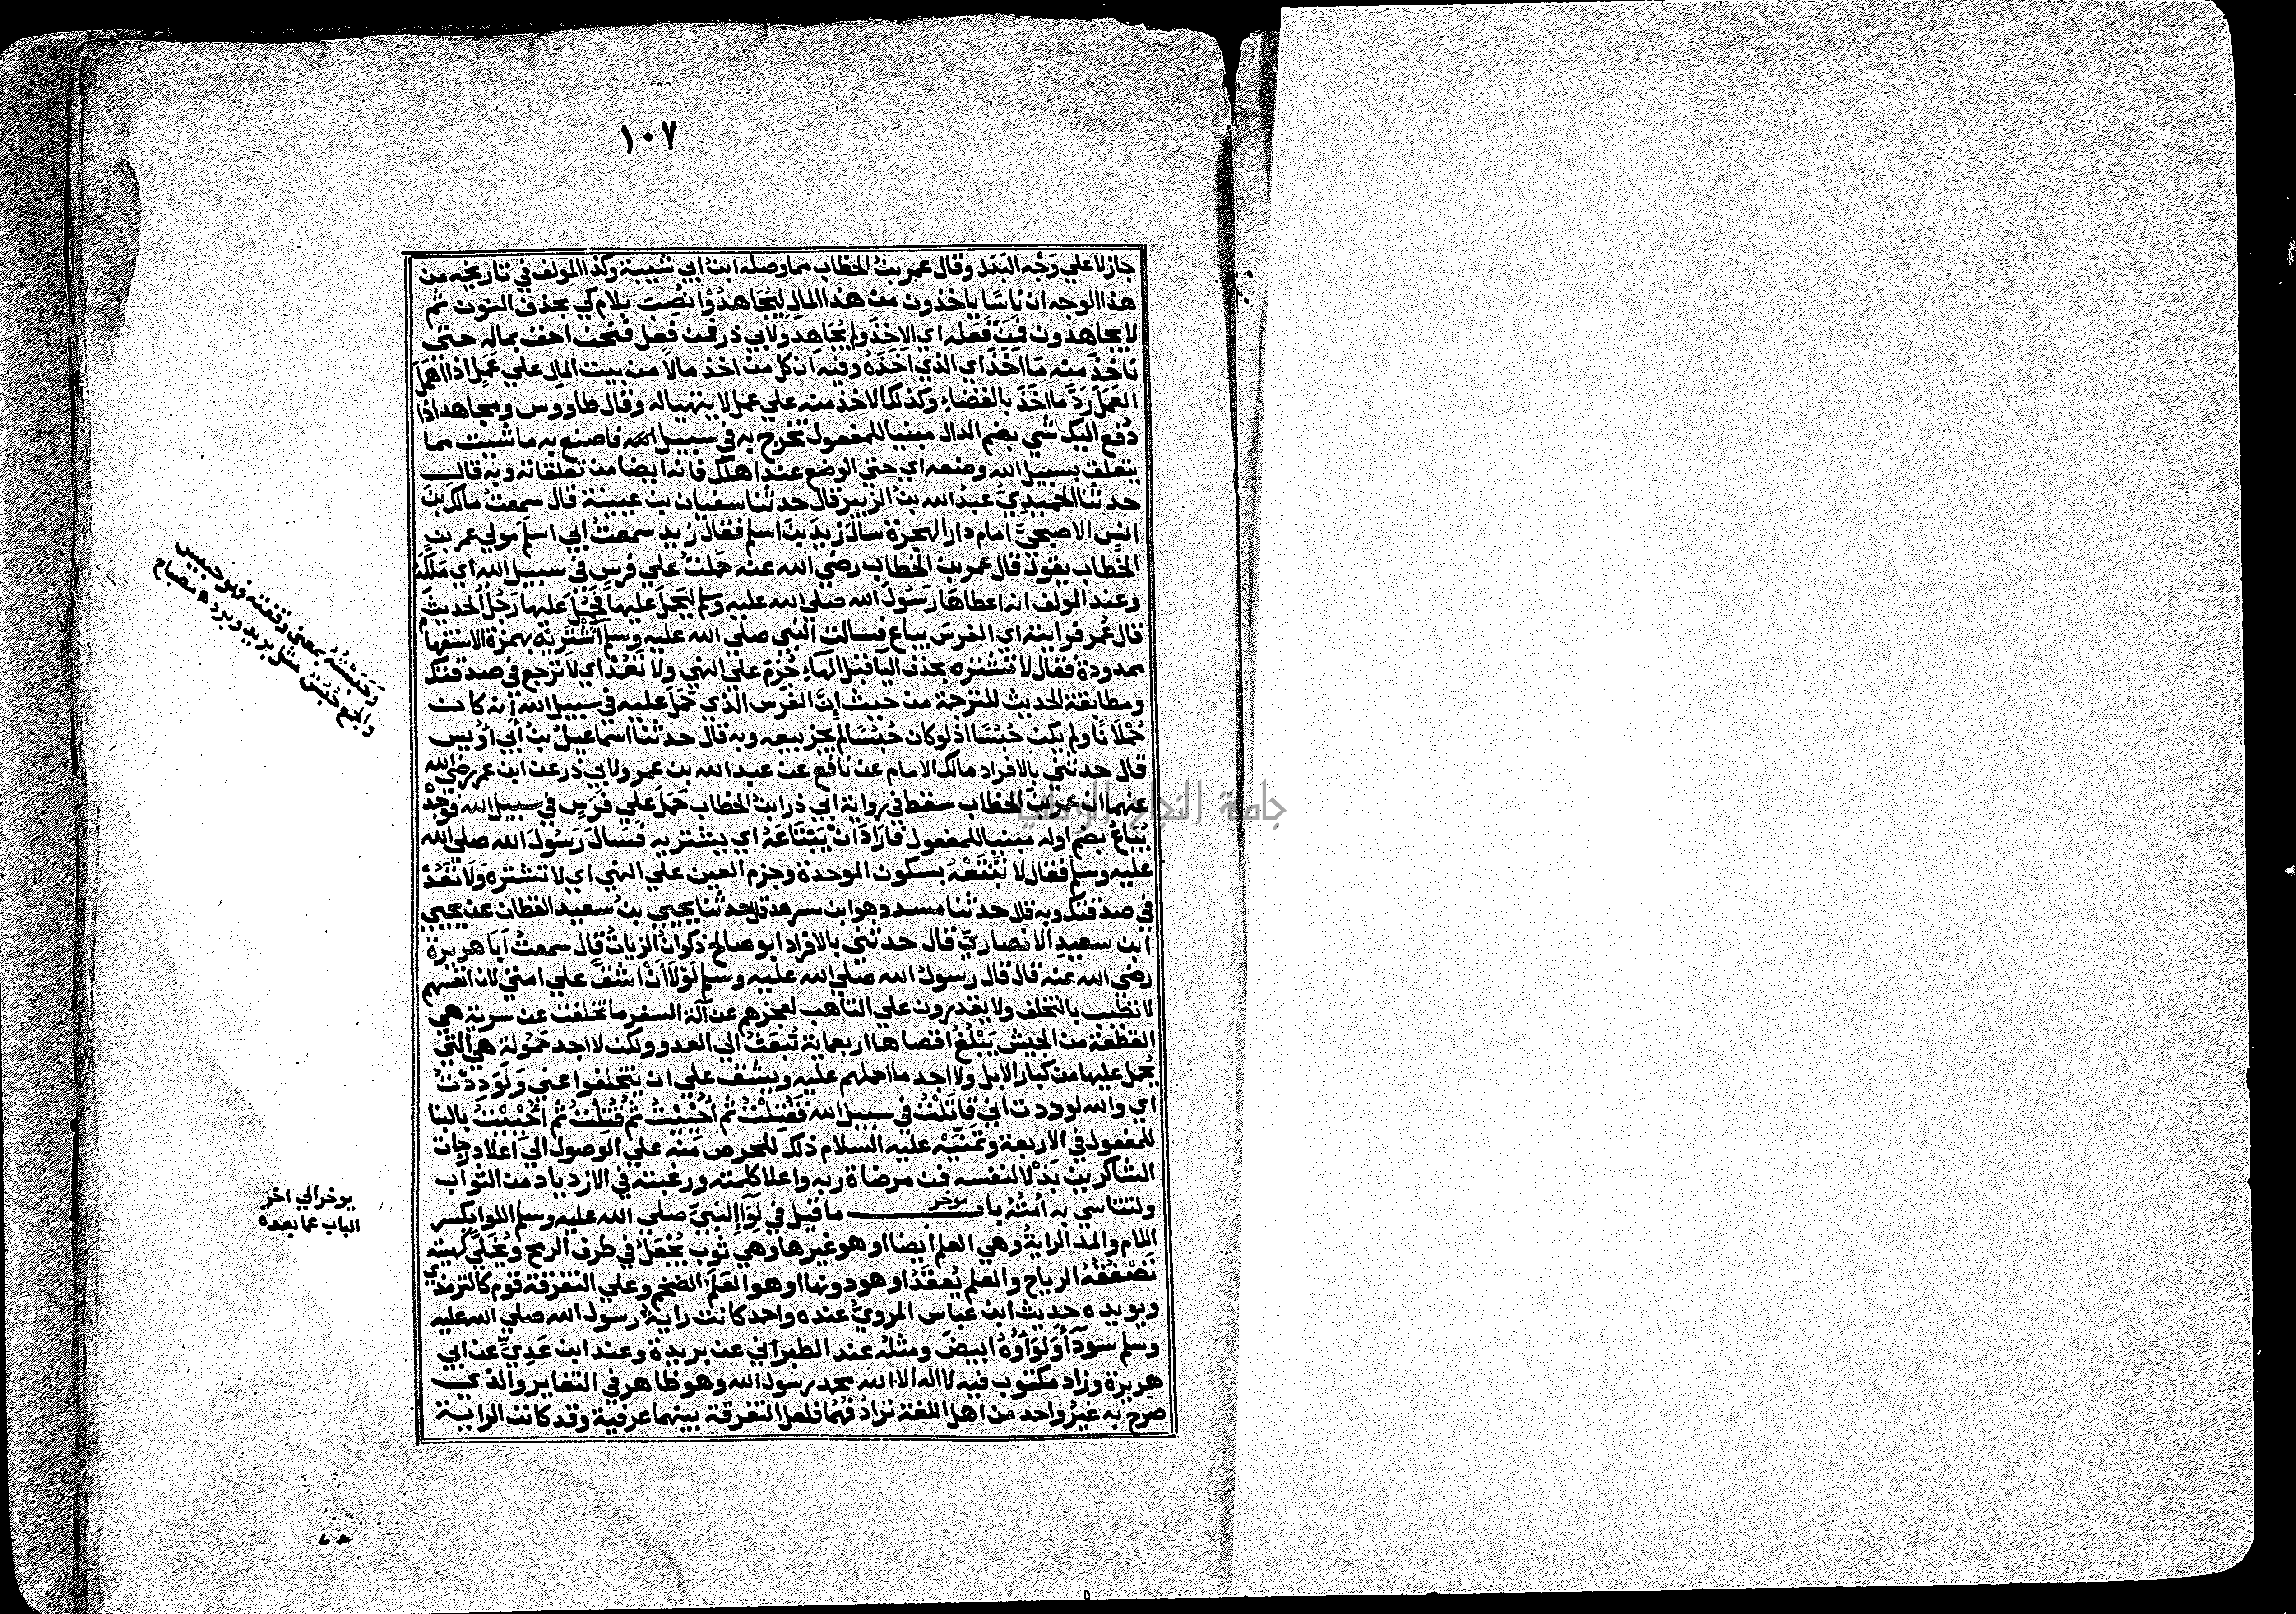 ١٠٧
جاز لا علي وَجْه البَدَل وقال عمر بن الخطاب مما وصله ابن ابي شيبة وكذا المولف في تاريخه من
هذا الوجه ان نَاسًا ياخذون من هذا المال ليُجَاهدُوْا نصب بلام كي بحذف النون ثم
لا يجاهدون فمن فَعَله اي الاخذ ولم يُجَاهد ولابي ذر فمن فعل فنحن احق بماله حتي
نَاخذَ منه مَا اخَذَ اي الذي اخَذَهُ وفيه ان كل من اخذ مالاً من بيت المال علي عَمَل اذا اهمل
العَمَلَ رَدَّ ما اخَذَ بالقضاء وكذلك الاخذ منه علي عمل لا يتهيا له وقال طاووس ومجاهد اذا
دُفع اليك شي بضم الدال مبنيا للمفعول تخرج به في سبيل الله فاصنع به ما شيت مما
يتعلق بسبيل الله وضعه اي حتي الوضع عند اهلك فانه ايضا من تعلقاته وبه قال
حدثنا الحميدِيُّ عبدُ الله بنُ الزبير قال حدثنا سفيان بن عيينة قال سمعتُ مالك بن
انسٍ الاصبحيَّ امام دار الهجرة سالَ زيدَ بنَ اسلم فقال زيد سمعتُ ابي اسلَمَ مولي عمر بنِ
الخطاب يقول قال عمر بن الخطاب رضي الله عنه حَملتُ علي فرسٍ في سبيل الله اي مَلَّكْتَ
وعند المولف انه اعطاهَا رسُولَ الله صلي الله عليه وسلم ليَحملَ عليها فحَمَلَ عَليها رَجُلُ الحديثَ
قال عُمر فرايته اي الفرسَ يباع فسالت النبي صلي الله عليه وسلم آشْتَريْه بهمزة الاستفهام
ممدودة فقال لا تشتره بحذف اليا قبل الهاء جُزِمَ علي النهي ولا تَعُدْ اي لا ترجع في صدقتك
ومطابقة الحديث للترجمة من حيث إنَّ الفَرَس الذي حَمَلَ عليه في سبيل الله إنه كان
حُمْلَانًا ولم يكن حُبُسًا اذ لو كان حُبُسًا لم يجز بيعه وبه قال حدثنا اسماعيلُ بنُ أبي أوَيس
قال حدثني بالافراد مالك الامام عن نافع عن عبد الله بن عمر ولابي ذر عن ابن عمر رضي الله
عنهما ان عمر بنَ الخطاب سقط في رواية ابي ذر ابنُ الخطاب حَمَلَ علي فَرَسٍ في سبيل الله فوَجَدَهُ
يُبَاعُ بضم اوله مبنيا للمفعول فارَادَ انْ يَبْتَاعَهُ اي يشتريه فسَالَ رَسُولَ الله صلي الله
عليه وسلم فقال لا تَبْتَعْهُ بسكون الموحدة وجزم العين علي النهي اي لا تشتره وَلا تَعُدْ
في صدقتك وبه قال حدثنا مسدد وهو ابن سرهد قال حدثنا يحيي بنُ سعيد القطان عن يحيي
ابن سعيدِ الانصاريِّ قال حدثني بالافراد ابو صالح ذكوانُ الزياتُ قال سمعتُ أبا هريرة
رضي الله عنه قال قال رسولُ الله صلي الله عليه وسلم لَوْلَا أنْ اشقَّ علي امتي لان انفسهم
لا تطيب بالتخلف ولا يقدرون علي التاهب لعجزهم عن آلة السفر ما تخلفت عن سرية هي
القطعة من الجيش يَبْلُغُ اقصاها اربعماية تُبعَثُ الي العدو ولكن لا اجد حَمُولة هي التي
يُحمل عليها من كبار الابل ولا اجد ما احملهم عليه ويشق علي ان يتخلفوا عني وَلَوَدِدْتُ
اي والله لوددت اني قَاتَلْتُ في سبيل الله فَقُتِلْتُ ثم أُحْيِيْتُ ثم قُتِلْتُ ثم أُحْيِيْتُ بالبنا
للمفعول في الاربعة وتمنّيه عليه السلام ذلك للحرص مَنه علي الوصول الي اعلا درجات
الشاكرين بَذلا لنفسه في مرضاة ربه واعلا كلمته ورغبته في الازدياد من الثواب
ولتتاسي به اُمتُهُ باب موخر ما قيل في لِوَآءِ النبيّ صلي الله عليه وسلم اللوا بكسر
اللام والمد الرايةُ وهي العلم ايضا او هو غيرها وهي ثوب يُجْعَلُ في طرف الرمح ويُخَلي كهيئته
تَصْفُقُهُ الرياح والعلم يُعقَدُ او هو دونها او هو العَلَمُ الضخم وعلي التفرقة قوم كالترمذي
ويويده حديث ابن عباس المرويُّ عنده واحمد كانت رايةُ رسول الله صلي الله عليه
وسلم سودآ ولِوَاؤُهُ ابيضَ ومثله عند الطبراني عن بريدة وعند ابن عَدِيّ عن ابي
هريرة وزاد مكتوب فيه لا اله الا الله محمد رسول الله وهو ظاهر في التغاير والذي
صرح به غيرُ واحد من اهل اللغة تَرَادُفُهُمَا فلعل التفرقة بينهما عرفية وقد كانت الراية
وَحَبَسْتُهُ بمعني وقفته فهو حبيس
والجمع حُبُسٌ مثل بريد وبرد ه مصباح
يوخر الي اخر
الباب عما بعده
جامعة النجاح الوطنية